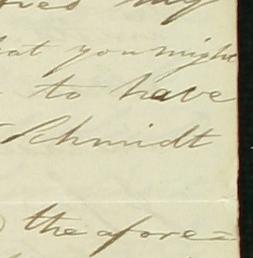 my
that you might
to have
Schmidt
the afore=